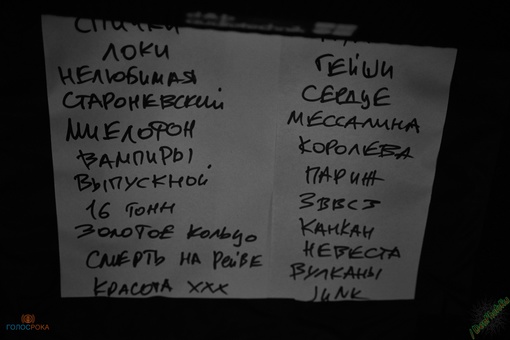 СПИЧКИ
ЛОКИ
НЕЛЮБИМАЯ
СТАРОНЕВСКИЙ
МИЕЛОФОН
ВАМПИРЫ
ВЫПУСКНОЙ
16 ТОНН
ЗОЛОТОЕ КОЛЬЦО
СМЕРТЬ НА РЕЙВЕ
КРАСОТА XXX
ГЕЙШИ
СЕРДЦЕ
МЕССАЛИНА
КОРОЛЕВА
ПАРИЖ
ЗВВСЗ
КАНКАН
НЕВЕСТА
ВУЛКАНЫ
JUNK
ГОЛОСРОКА